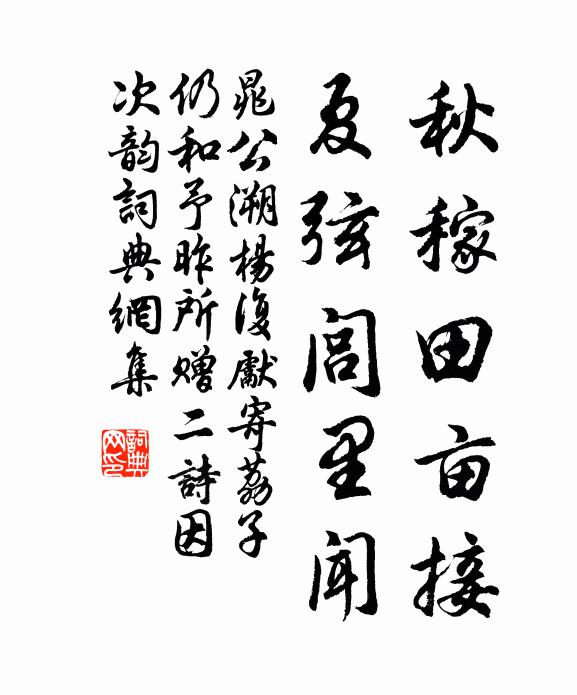 秋稼田亩接
夏弦闾里闻
晁公溯楊復獻寄荔子
仍和予昨所赠二詩因
次韵詞典網集
詞典网印